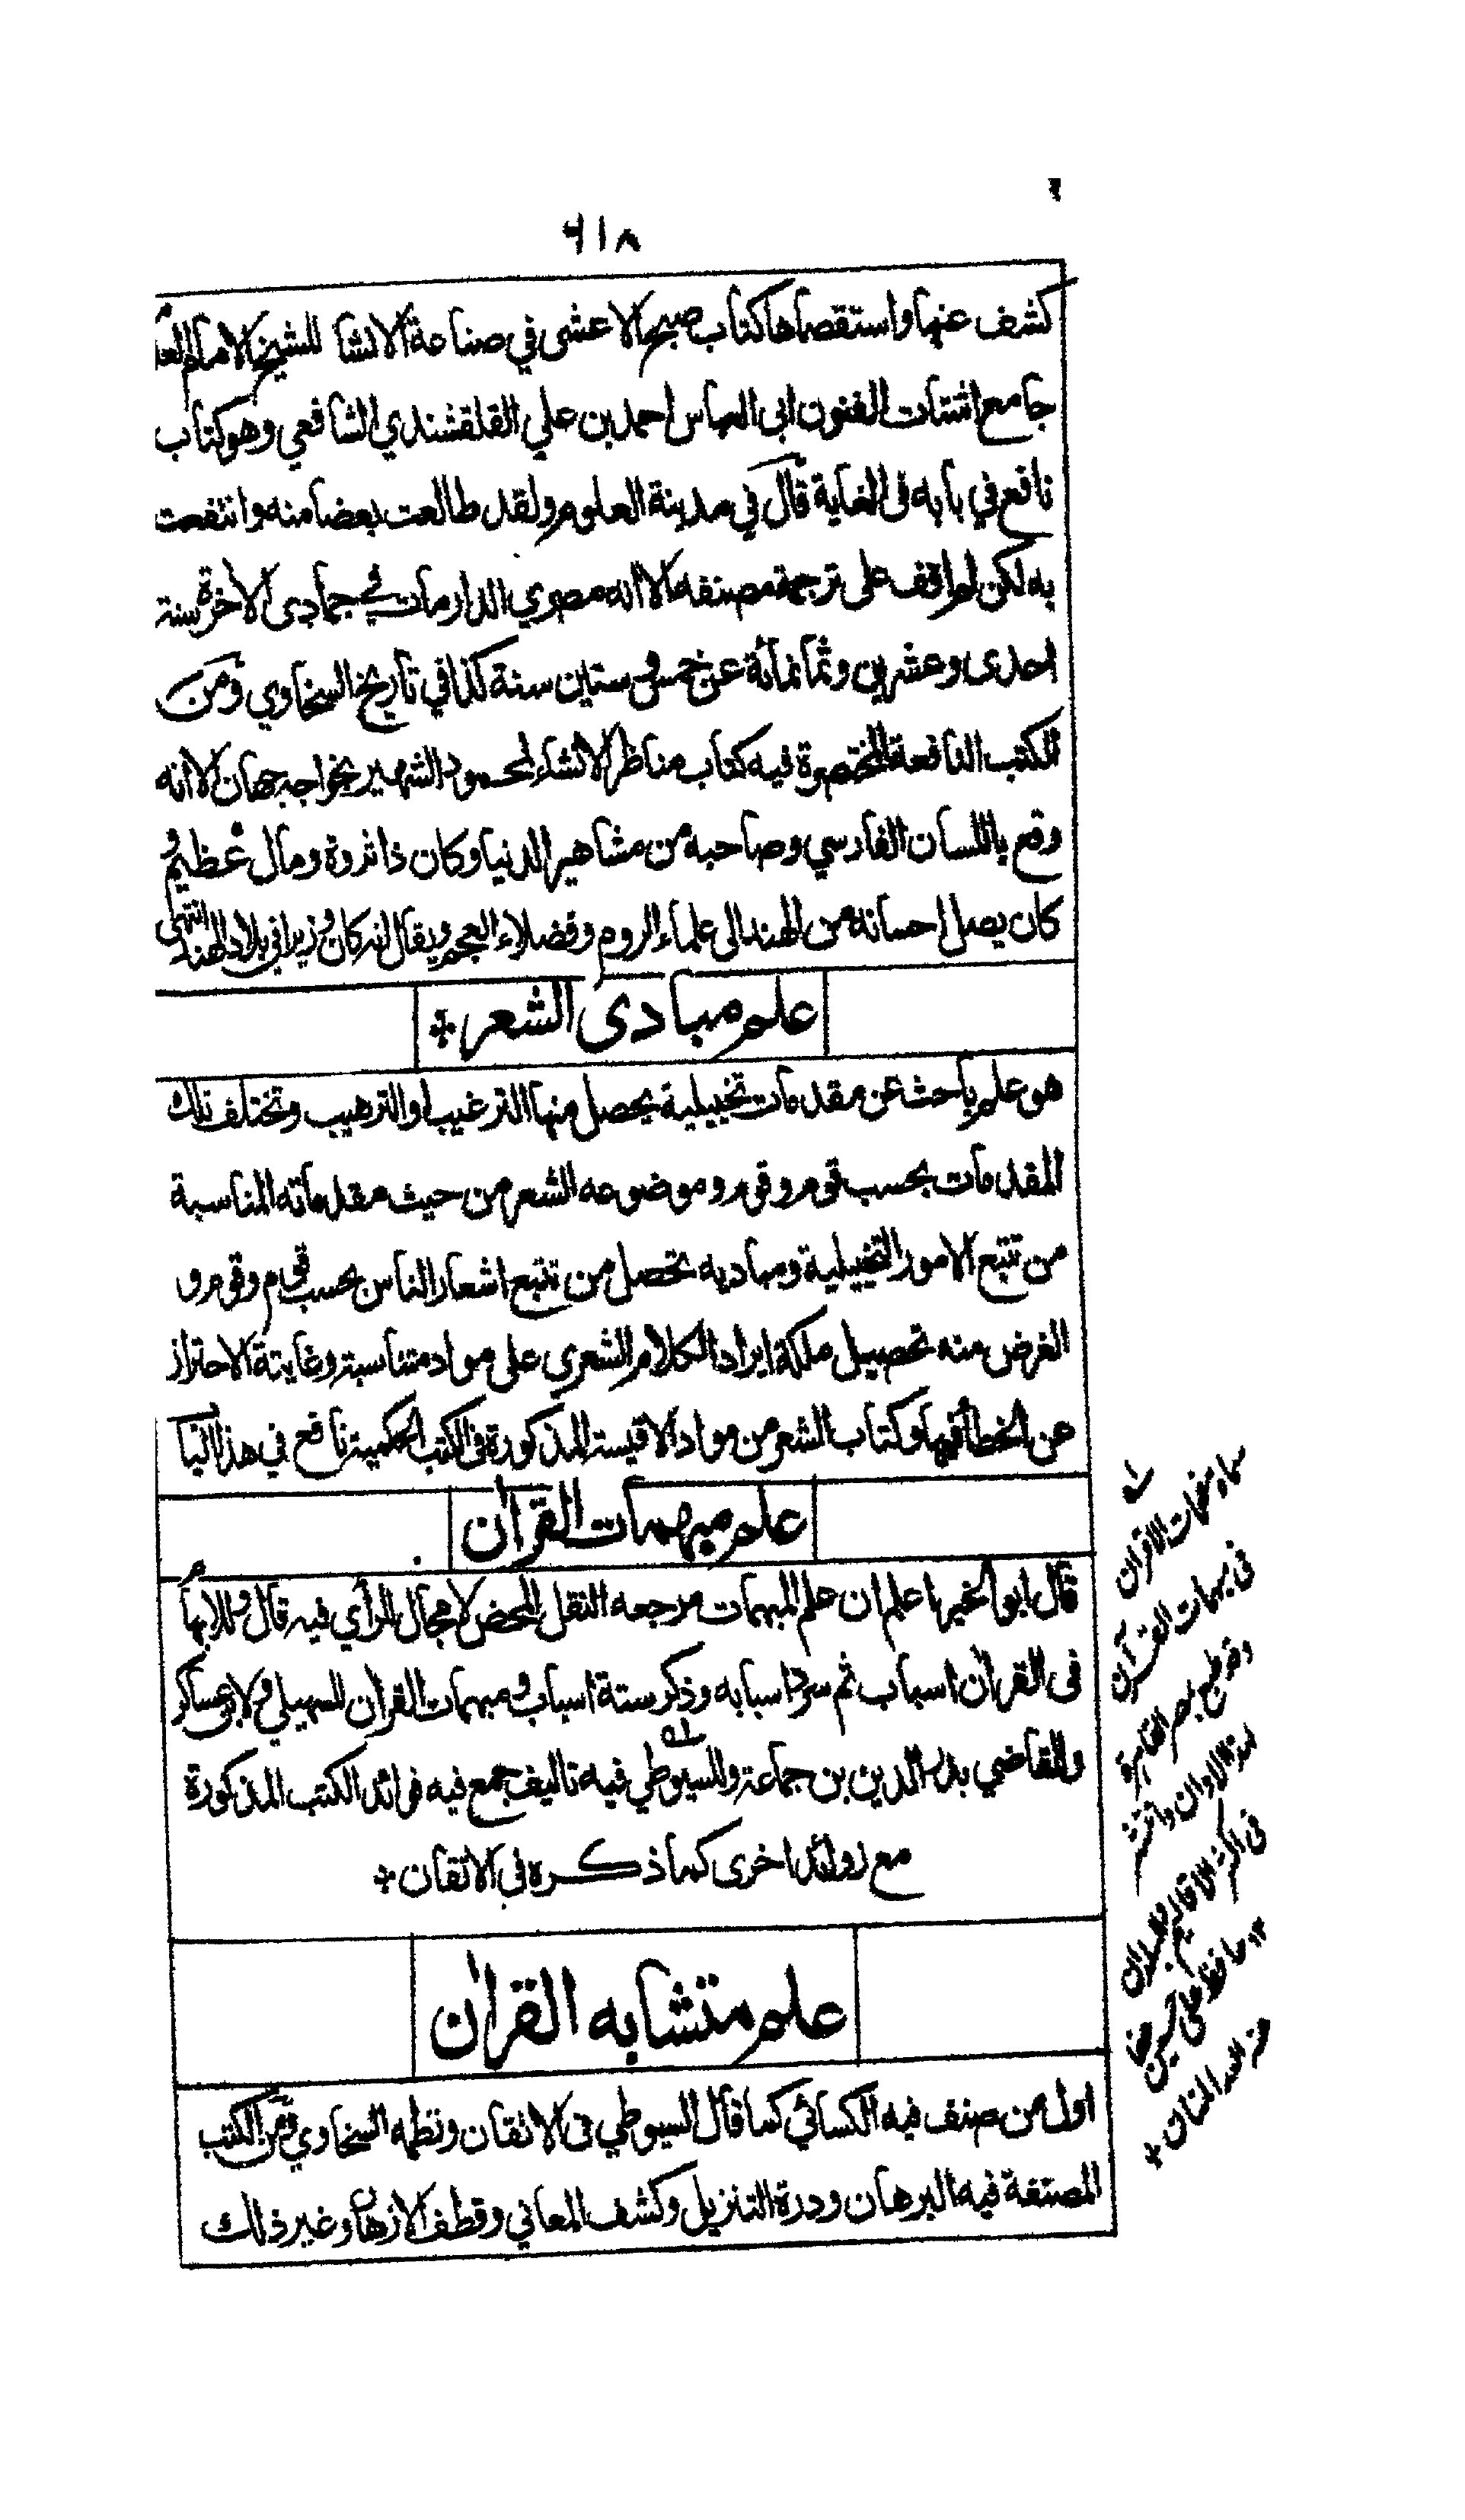 ٦١٨
كشف عنها واستقصاها كتاب صبح الاعشى في صناعة الانشا للشيخ الامام العلا
جامع اشتات الفنون ابى العباس احمد بن علي القلقشندي الشافعي وهو كتاب
نافع في بابه فى الغاية قال في مدينة العلوم ولقد طالعت بعضا منه وانتفعت
به لكن لم اقف على ترجمة مصنفه الا انه مصري الدار مات في جمادى الاخرة سنة
احدى وعشرين وثمانمائة عن خمس وستين سنة كذا في تاريخ السخاوي ومن
الكتب النافعة المختصرة فيه كتاب مناظر الانشاء لمحمود الشهير بخواجه جهان الا انه
وقع باللسان الفارسي وصاحبه من مشاهير الدنيا وكان ذا ثروة ومال عظيم و
كان يصل احسانه من الهند الى علماء الروم وفضلاء العجم ويقال انه كان وزيرا في بلاد الهند انتهى
علم مبادى الشعر *
هو علم باحث عن مقدمات تخييلية يحصل منها الترغيب او الترهيب وتختلف تلك
المقدمات بحسب قوم وقوم وموضوعه الشعر من حيث مقدماته المناسبة
من تتبع الامور التخييلية ومباديه تحصل من تتبع اشعار الناس بحسب قوم وقوم و
الغرض منه تحصيل ملكة ايراد الكلام الشعري على مواد متناسبة وغايته الاحتراز
عن الخطأ فيها وكتاب الشعر من مواد الاقيسة المذكورة فى الكتب الحكمية نافع في هذا البا
علم مبهمات القران
قال ابو الخير اعلم ان علم المبهمات مرجعه النقل المحض لا مجال للرأي فيه قال وللابها
فى القران اسباب ثم سرد اسبابه وذكر ستة اسباب ومبهمات القران للسهيلي ولابن عساكر
وللقاضي بدر الدين بن جماعة وللسيوطي فيه تاليف جمع فيه فوائد الكتب المذكورة
مع زوائد اخرى كما ذكره في الاتقان *
علم متشابه القران
اول من صنف فيه الكسائي كما قال السيوطي فى الاتقان ونظمه السخاوي ومن الكتب
المصنفة فيه البرهان ودرة التنزيل وكشف المعاني وقطف الازهار وغير ذلك
سماه مفحمات الاقران
فى مبهمات القرآن
وقد طبع بمصر القاهرة